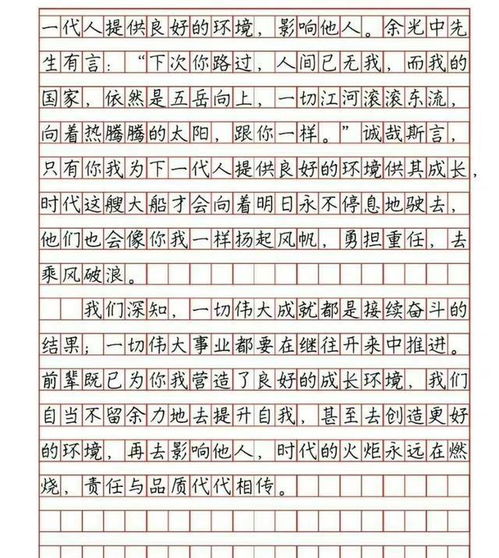 一代人提供良好的环境，影响他人。余光中先
生有言：“下次你路过，人间已无我，而我的
国家，依然是五岳向上，一切江河滚滚东流，
向着热腾腾的太阳，跟你一样。”诚哉斯言，
只有你我为下一代人提供良好的环境供其成长，
时代这艘大船才会向着明日永不停息地驶去，
他们也会像你我一样扬起风帆，勇担重任，去
乘风破浪。
我们深知，一切伟大成就都是接续奋斗的
结果；一切伟大事业都要在继往开来中推进。
前辈既已为你我营造了良好的成长环境，我们
自当不留余力地去提升自我，甚至去创造更好
的环境，再去影响他人，时代的火炬永远在燃
烧，责任与品质代代相传。